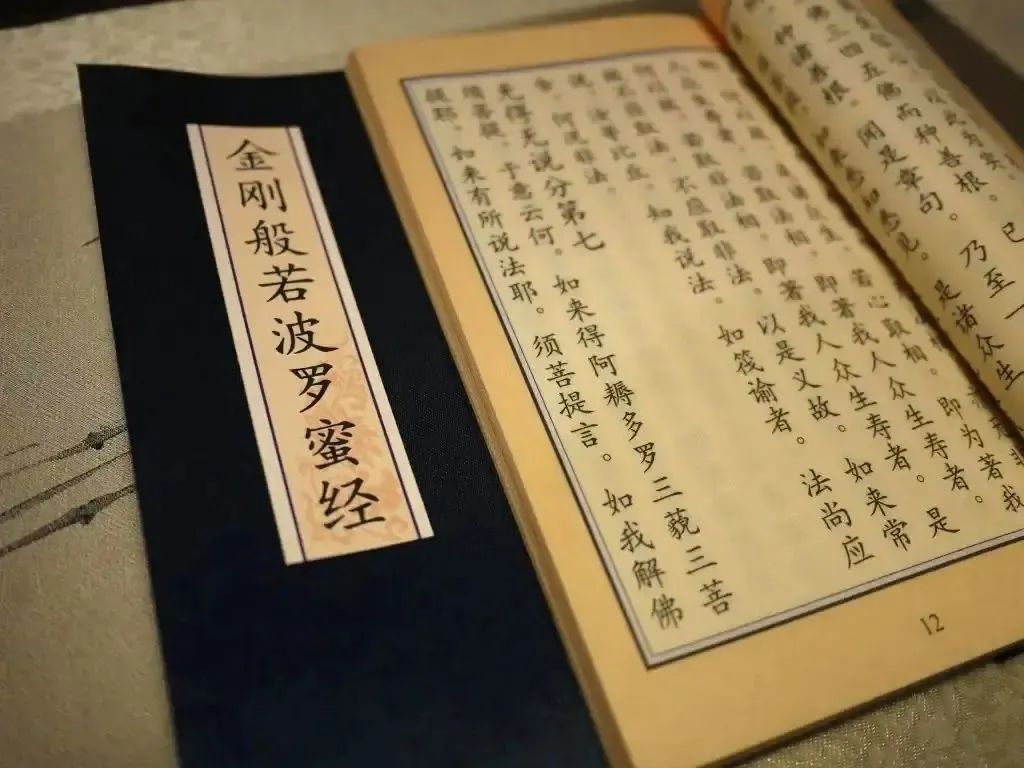 金刚般若波罗蜜经
佛三四五佛而种善根。已
种诸善根。闻是章句。乃至一
如来悉知悉见。是诸众生
若心取相。即为著我
人众生寿者。若取法相。即著我人众生寿者。
何以故。若取非法相。即著我人众生寿者。是
故不应取法。不应取非法。以是义故。如来常
说。汝等比丘。知我说法。如筏谕者。法尚应
舍。何况非法。
无得无说分第七
须菩提。于意云何。如来得阿耨多罗三藐三菩
提耶。如来有所说法耶。须菩提言。如我解佛
12